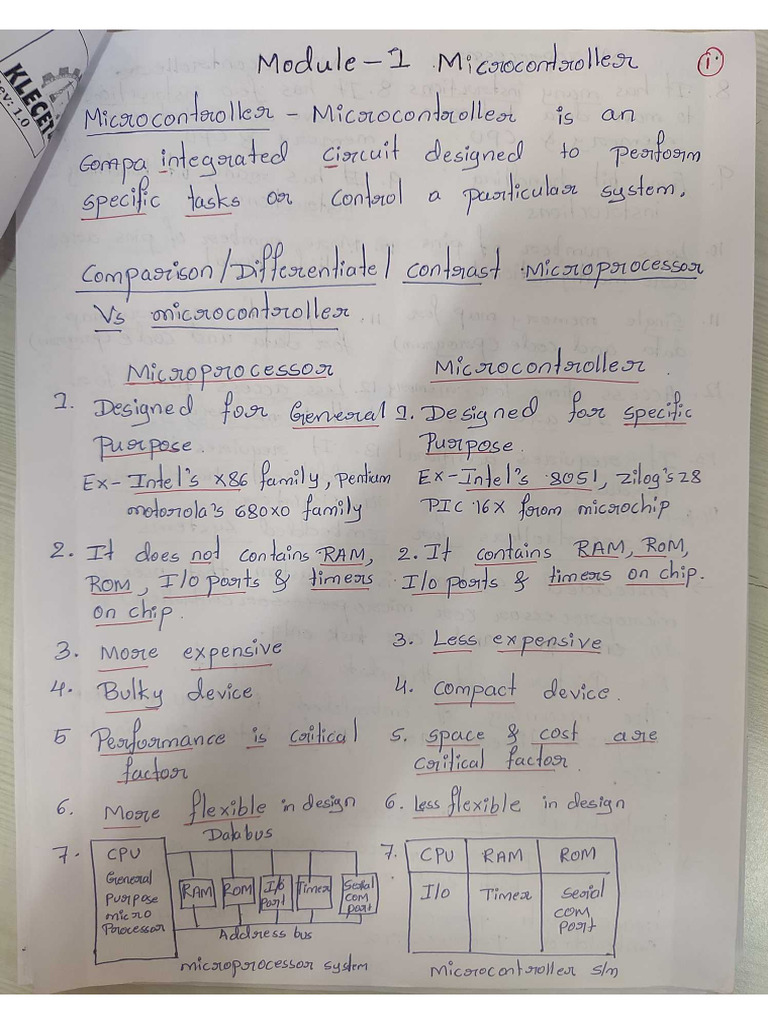 KLECET
ev: 1.0
Module-1 Microcontroller
1.
Microcontroller - Microcontroller is an
compa integrated circuit designed to perform
specific tasks or control a particular system.
Comparison/Differentiate/contrast Microprocessor
Vs microcontroller.
Microprocessor
1. Designed for General
Purpose.
Ex- Intel's X86 family, pentium
motorola's 680X0 family
2. It does not contains RAM,
ROM, I/O ports & timers
on chip.
3. More expensive
4. Bulky device
5 Performance is critical
factor
6. More flexible in design
7.
Data bus
CPU
General
purpose
micro
Processor
RAM
ROM
I/O
Port
Timer
Serial
com
port
Address bus
microprocessor system
Microcontroller.
1. Designed for specific
Purpose.
Ex- Intel's 8051, Zilog's Z8
PIC 16X from microchip
2. It contains RAM, ROM,
I/O ports & timers on chip.
3. Less expensive
4. compact device.
5. space & cost are
critical factor.
6. Less flexible in design
7.
CPU RAM ROM
I/O Timer Serial
com
port
Microcontroller s/m